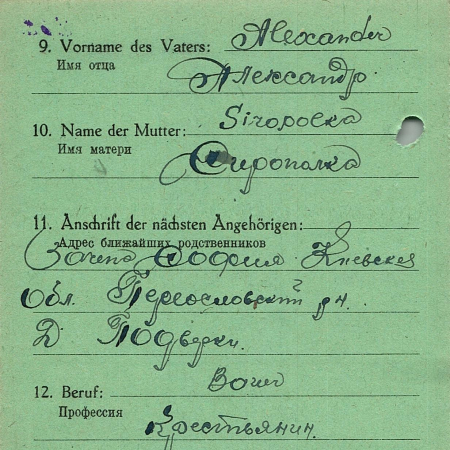 9. Vorname des Vaters: Alexander
Имя отца Александр
10. Name der Mutter: Siropolka
Имя матери Сирополка
11. Anschrift der nächsten Angehörigen:
Адрес ближайших родственников
София Киевская
Обл. Переословский р-н.
Д. Подверки
12. Beruf: Bauer
Профессия Крестьянин.